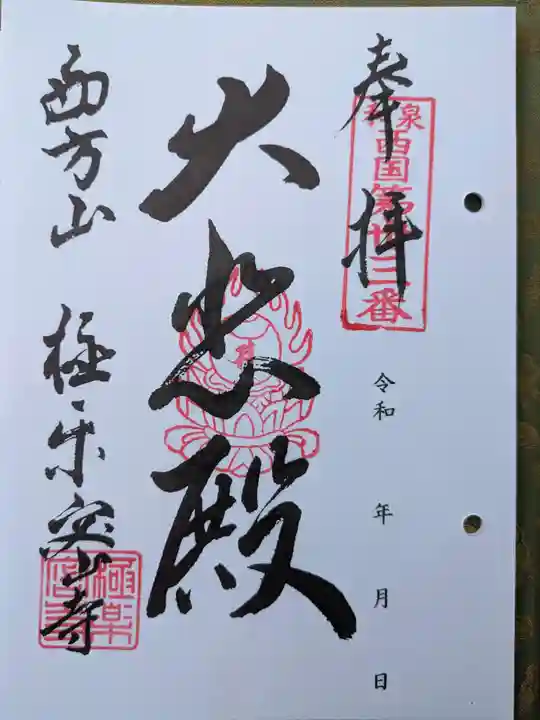 奉拝
和泉西国第廿三番
令和 年 月 日
大悲殿
西方山 極楽密寺
極楽密寺